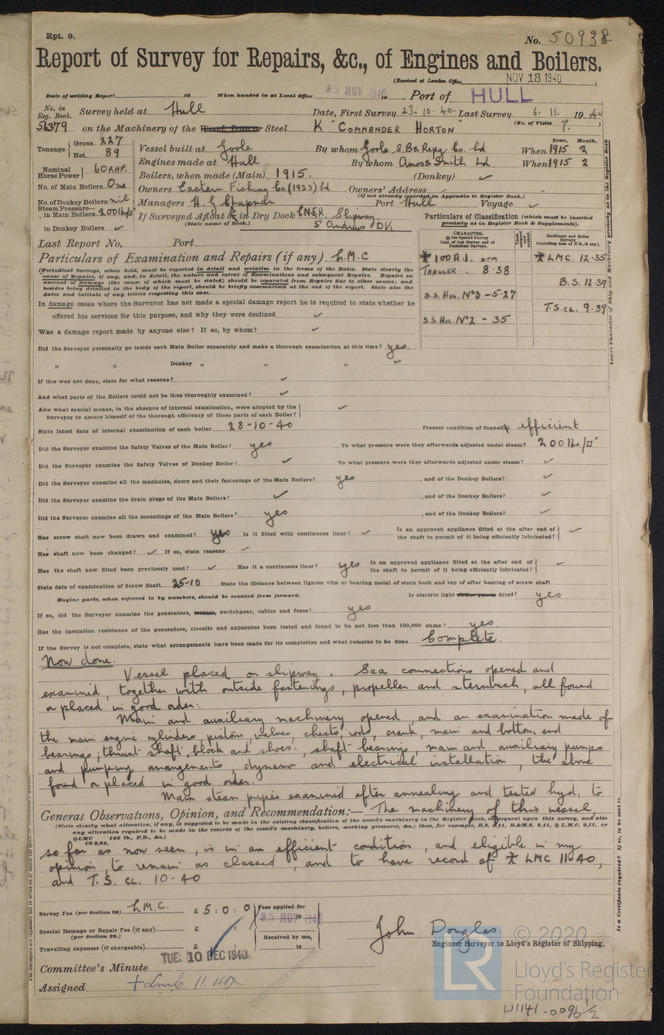 Rpt. 9.
No. 50938
Report of Survey for Repairs, &c., of Engines and Boilers.
(Received at London Office NOV 18 1940)
Date of writing Report 19 When handed in at Local Office 15 NOV 1940 Port of HULL
No. in Reg. Book. 56379 Survey held at Hull Date, First Survey 23-10-40 Last Survey 6.11.1940
(No. of Visits 7.)
on the Machinery of the Steel K "COMMANDER HORTON"
Tonnage Gross. 227 Net. 89
Vessel built at Goole By whom Goole S.B.& Repg Co. Ld When 1915 2
Engines made at Hull By whom Amos Smith Ld When 1915 2
Nominal Horse Power 60 RHP.
Boilers, when made (Main) 1915. (Donkey) ✓
No. of Main Boilers One Owners Eastern Fishing Co (1923) Ld Owners' Address
(if not already recorded in Appendix to Register Book.)
No. of Donkey Boilers nil Managers Port Hull Voyage ✓
Steam Pressure in Main Boilers 200 lb/□" If Surveyed Afloat or in Dry Dock L.N.E.R. Slipway
in Donkey Boilers ✓ (State name of Dock.) St Andrews DK
Particulars of Classification (which must be inserted precisely as in Register Book & Supplements).
Last Report No. Port
Particulars of Examination and Repairs (if any) L.M.C
100A.1. STM
TRAWLER. 8.38
S.S. HUL. No 3 - 5.27
S.S. HUL. No 2 - 35
LMC. 12.35
B.S. 12.39
T.S. CL. 9.39
(Periodical Surveys, when held, must be reported in detail and seriatim in the terms of the Rules. State clearly the
In damage cases where the Surveyor has not made a special damage report he is required to state whether he
offered his services for this purpose, and why they were declined ✓
Was a damage report made by anyone else? If so, by whom? ✓
Did the Surveyor personally go inside each Main Boiler separately and make a thorough examination at this time? yes.
" " Donkey " " " ✓
If this was not done, state for what reasons? ✓
And what parts of the Boilers could not be thus thoroughly examined? ✓
Also what special means, in the absence of internal examination, were adopted by the
Surveyor to assure himself of the thorough efficiency of those parts of each Boiler? ✓
State latest date of internal examination of each boiler 28-10-40 Present condition of funnel efficient
Did the Surveyor examine the Safety Valves of the Main Boiler? yes To what pressure were they afterwards adjusted under steam? 200 lb/□"
Did the Surveyor examine the Safety Valves of Donkey Boiler? ✓ To what pressure were they afterwards adjusted under steam? ✓
Did the Surveyor examine all the manholes, doors and their fastenings of the Main Boilers? yes, and of the Donkey Boilers? ✓
Did the Surveyor examine the drain plugs of the Main Boilers? ✓, and of the Donkey Boilers? ✓
Did the Surveyor examine all the mountings of the Main Boilers? yes, and of the Donkey Boilers? ✓
Has screw shaft now been drawn and examined? yes Is it fitted with continuous liner? ✓ Is an approved appliance fitted at the after end of
the shaft to permit of it being efficiently lubricated? ✓
Has shaft now been changed? ✓ If so, state reasons ✓
Has the shaft now fitted been previously used? ✓ Has it a continuous liner? yes Is an approved appliance fitted at the after end of
the shaft to permit of it being efficiently lubricated? ✓
State date of examination of Screw Shaft 25-10 State the distance between lignum vitæ or bearing metal of stern bush and top of after bearing of screw shaft
Engine parts, when referred to by numbers, should be counted from forward. Is electric light fitted? yes
If so, did the Surveyor examine the generators, switchgear, cables and fuses? yes
Has the insulation resistance of the generators, circuits and apparatus been tested and found to be not less than 100,000 ohms? yes
If the Survey is not complete, state what arrangements have been made for its completion and what remains to be done Complete.
Now done.
Vessel placed on slipway. Sea connections opened and
examined, together with outside fastenings, propeller and sternbush, all found
or placed in good order.
Main and auxiliary machinery opened, and an examination made of
the main engine cylinders, pistons, valves, chests, rods, crank, main and bottom end
bearings, thrust shaft, block and shoes, shaft bearings, main and auxiliary pumps
and pumping arrangements dynamo and electrical installation, the above
found or placed in good order.
Main steam pipes examined after annealing and tested hyd. to
General Observations, Opinion, and Recommendation:— The machinery of this vessel,
so far as now seen, is in an efficient condition, and eligible in my
opinion to remain as classed, and to have record of LMC 11-40,
and T.S. CL. 10-40
Survey Fee (per Section 29) L.M.C. £ 5:0:0 Fees applied for 15 NOV 1940
Special Damage or Repair Fee (if any) (per Section 29.) £
Received by me,
Travelling expenses (if chargeable) £
John Douglas
Engineer Surveyor to Lloyd's Register of Shipping.
Committee's Minute TUE. 10 DEC 1940
Assigned + Lmc 11.40
© 2020
LR
Lloyd's Register
Foundation
W1141-0096 1/2